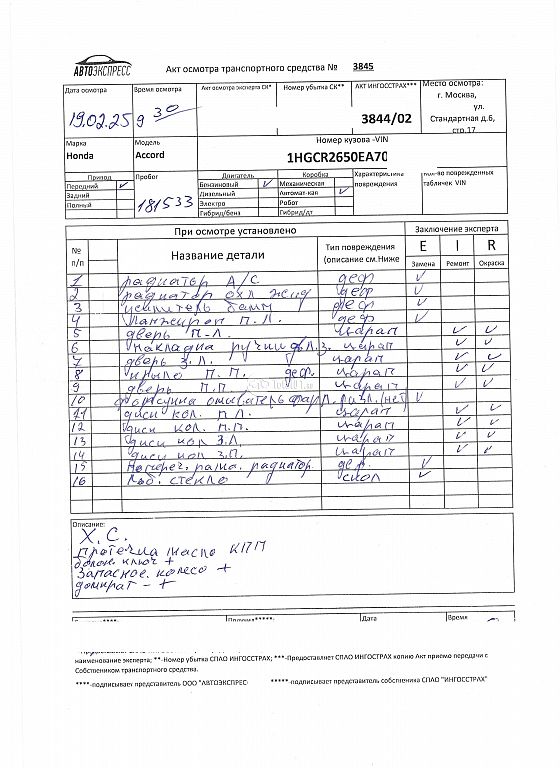 АВТОЭКСПРЕСС
Акт осмотра транспортного средства № 3845
Дата осмотра Время осмотра Акт осмотра эксперта СК* Номер убытка СК** АКТ ИНГОССТРАХ*** Место осмотра:
19.02.25 9 30 3844/02 г. Москва,
ул.
Стандартная д.6,
стр.17
Марка Модель Номер кузова -VIN
Honda Accord 1HGCR2650EA70
Привод Пробег Двигатель Коробка Характеристика повреждения кол-во поврежденных табличек VIN
Передний Бензиновый Механическая
Задний Дизельный Автомат-кая
Полный 181533 Электро Робот
Гибрид/бена Гибрид/дт
При осмотре установлено Заключение эксперта
№ п/п Название детали Тип повреждения (описание см.Ниже E I R
Замена Ремонт Окраска
1 радиатор А/С деф ✓
2 радиатор охл жид деф ✓
3 усилитель бамп деф ✓
4 Ланжерон П.Л. деф ✓
5 дверь П-Л царап ✓ ✓
6 накладка ручки дв.Л.З. царап ✓ ✓
7 дверь З.Л. царап ✓ ✓
8 крыло П.П. деф. царап ✓ ✓
9 дверь П.П царап ✓ ✓
10 форсунка омыватель фар Л. разл.(нет) ✓
11 диск кол. П Л. царап ✓ ✓
12 диск кол. П.П. царап ✓ ✓
13 диск кол З.Л. царап ✓ ✓
14 диск кол З.П. царап ✓ ✓
15 Попереч. рама. радиатор. деф. ✓
16 Лоб. стекло скол ✓
Описание:
Х.С.
Протечка масло КПП
балон. ключ +
Запасное. колесо +
домкрат - +
Дата Время
наименование эксперта; **-Номер убытка СПАО ИНГОССТРАХ; ***-Предоставляет СПАО ИНГОСТРАХ копию Акт приемо передачи с
Собствеником транспортного средства.
****-подписывает представитель ООО "АВТОЭКСПРЕС *****-подписывает представитель собственика СПАО "ИНГОССТРАХ"